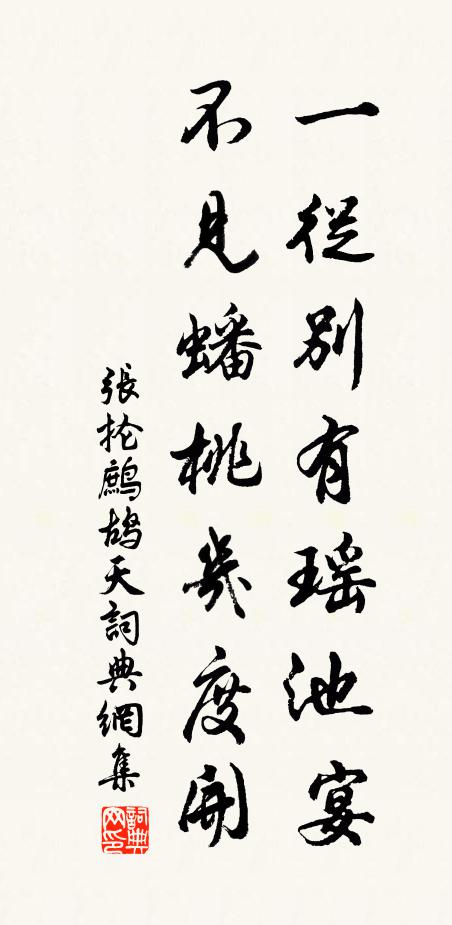 一從別有瑤池宴
不見蟠桃幾度開
張掄鷓鴣天詞典網集
詞典网印